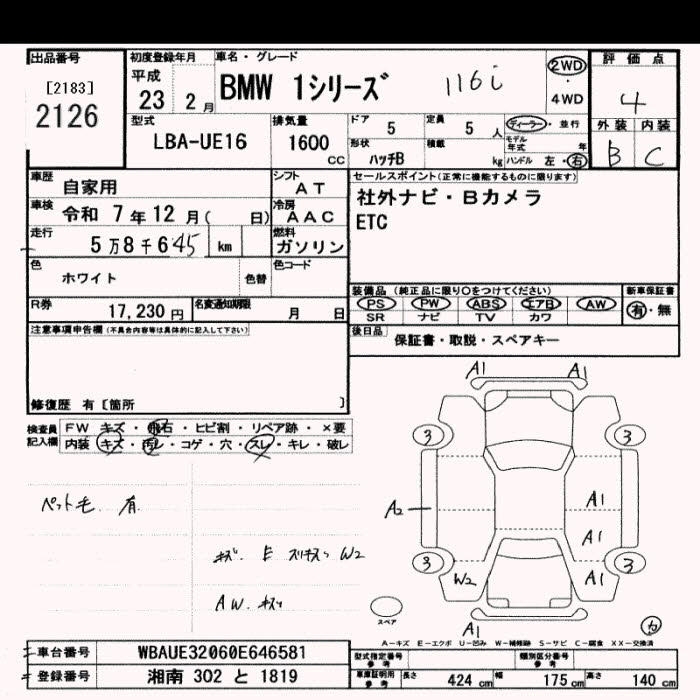 出品番号
[2183]
2126
初度登録年月
平成
23 2 月
車名・グレード
BMW 1シリーズ 116i
2WD
・
4WD
評価点
4
外装 内装
B C
型式
LBA-UE16
排気量
1600
CC
ドア
5
定員
5 人
ディーラー・並行
形状
ハッチB
積載
kg
モデル年式 年
ハンドル 左・右
車歴
自家用
シフト
AT
車検
令和 7 年 12 月( 日)
冷房
AAC
走行
5万8千645 km
燃料
ガソリン
色
ホワイト
色替
色コード
R券
17,230 円
名変通知期限
月 日
セールスポイント(正常に機能するものに限ります)
社外ナビ・Bカメラ
ETC
装備品(純正品に限り○をつけてください)
PS PW ABS エアB AW
SR ナビ TV カワ
新車保証書
有・無
後日品
保証書・取説・スペアキー
注意事項申告欄(不具合内容等は具体的に記入して下さい)
修復歴 有 [箇所 ]
検査員記入欄
FW キズ・飛石・ヒビ割・リペア跡・×要
内装 キズ・汚レ・コゲ・穴・スレ・キレ・破レ
ペット毛 有
キズ E スリキズ W2
AW キズ
A1 A1
3 3
A2 A1
A1
3 3
W2 A1
A1
スペア
カ
A-キズ E-エクボ U-凹み W-補修跡 S-サビ C-腐食 XX-交換済
車台番号
WBAUE32060E646581
登録番号
湘南 302 と 1819
型式指定番号
参考
類別区分番号
参考
車庫証明用
参考
長さ 424 cm
幅 175 cm
高さ 140 cm